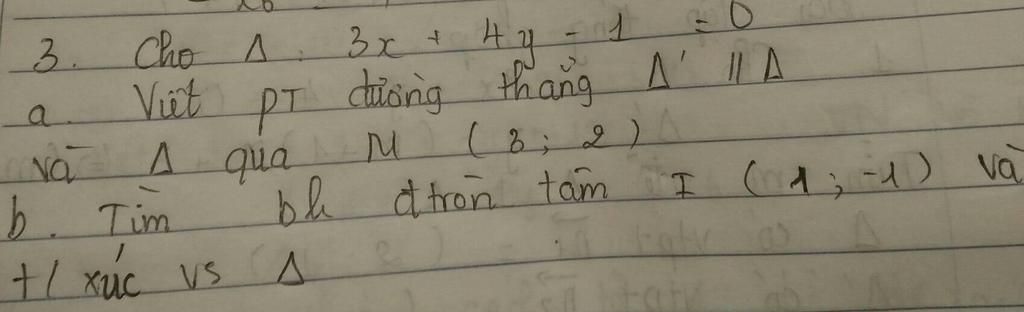 3. Cho Δ : 3x + 4y - 1 = 0
a. Viết PT đường thẳng Δ' // Δ
và Δ qua M (3; 2)
b. Tìm bk đtròn tâm I (1; -1) và
t/xúc vs Δ